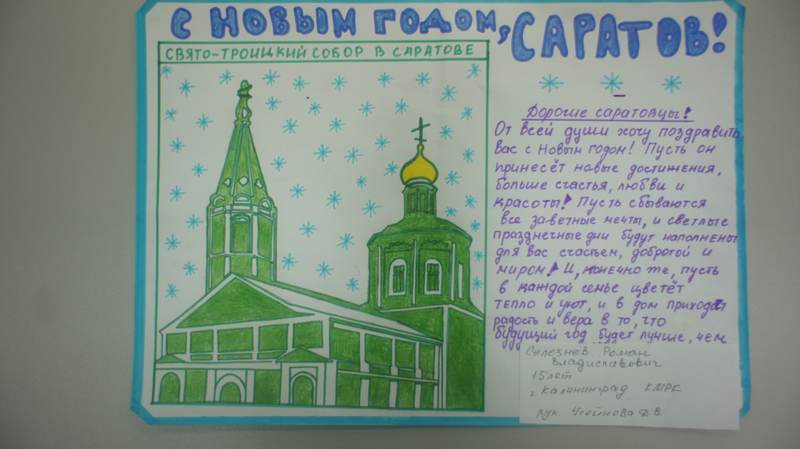 С НОВЫМ ГОДОМ, САРАТОВ!
СВЯТО-ТРОИЦКИЙ СОБОР В САРАТОВЕ
Дорогие саратовцы!
От всей души хочу поздравить
вас с Новым годом! Пусть он
принесёт новые достижения,
больше счастья, любви и
красоты! Пусть сбываются
все заветные мечты, и светлые
праздничные дни будут наполнены
для вас счастьем, добротой и
миром! И, конечно же, пусть
в каждой семье цветёт
тепло и уют, и в дом приходят
радость и вера в то, что
будущий год будет лучше, чем
Селезнев Роман
Владиславович
15 лет
г. Калининград КМРК
рук